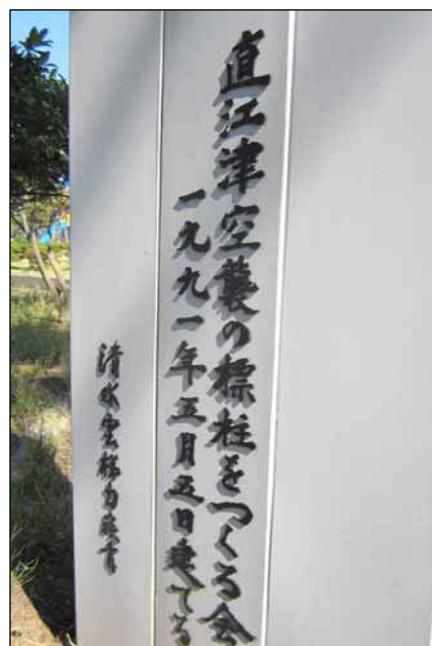 直江津空襲の標柱をつくる会
一九九一年五月五日建てる
清水雲
書